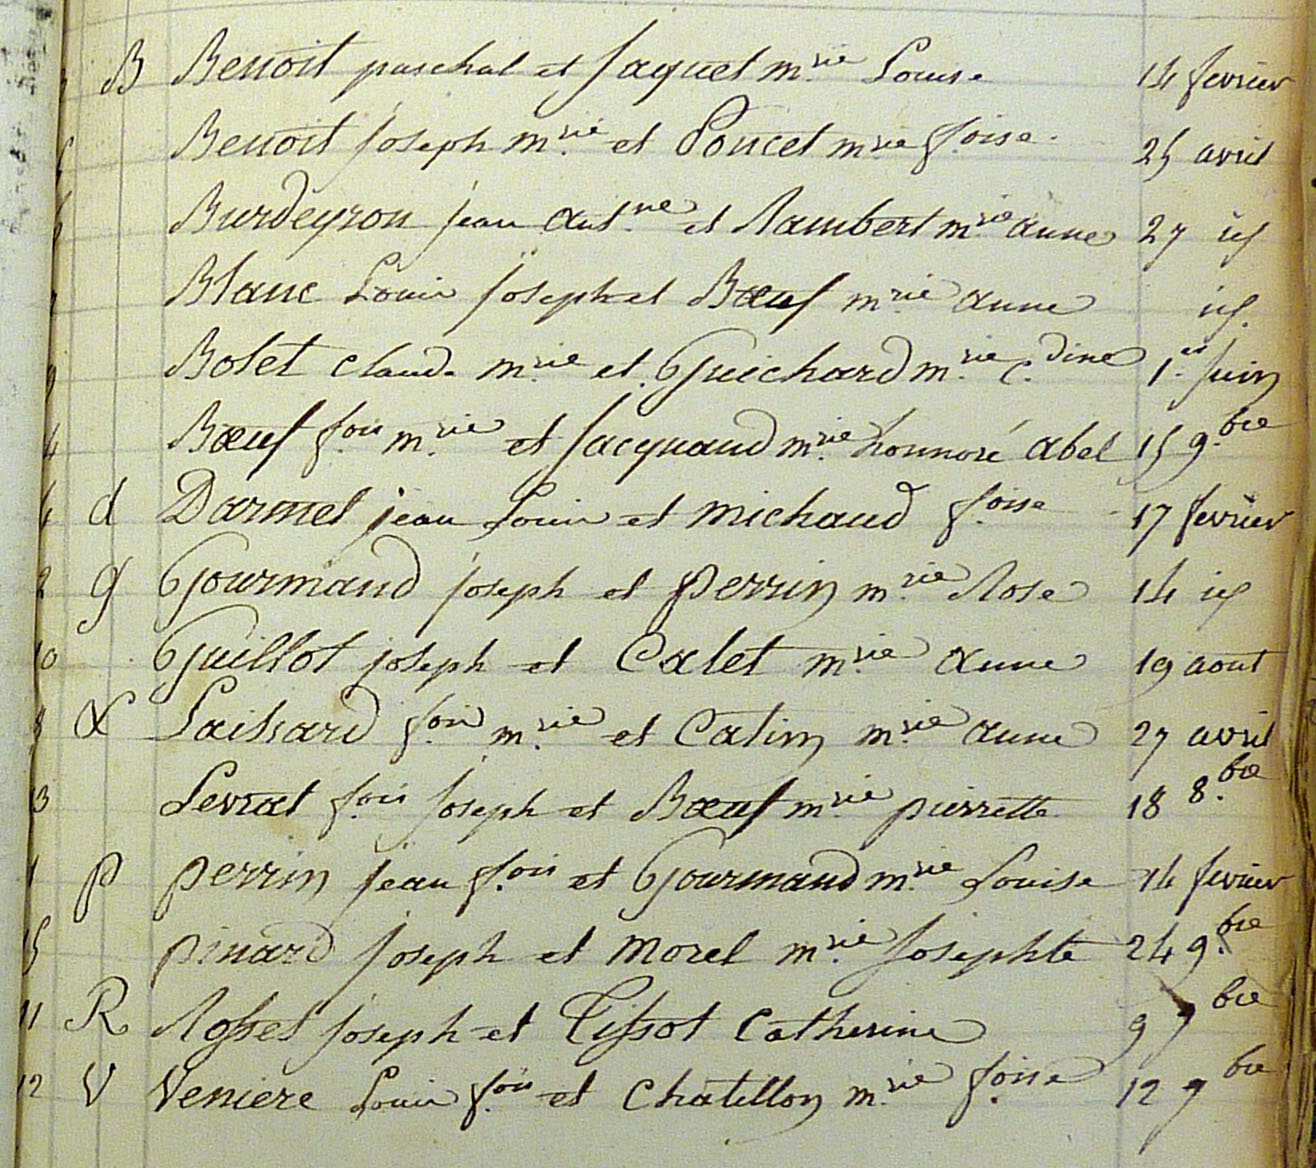 B Benoit paschal et Jaquet m.rie Louise 14 fevrier
5 Benoit Joseph m.rie et Poncet m.rie f.oise 25 avril
6 Burdeyron jean ant.ne et Rambert m.rie anne 27 id
7 Blanc Louis Joseph et Bœuf m.rie anne id.
9 Bolet claude m.rie et Guichard m.rie c.dine 1.er Juin
4 Bœuf f.ois m.rie et Jacquand m.rie honnoré abel 15 9.bre
6 d Darmet jean Louis et michaud f.oise 17 fevrier
2 g Gourmand joseph et perrin m.rie Rose 14 id
10 Guillot joseph et Calet m.rie anne 19 aout
8 L Laissard f.ois m.rie et Catin m.rie anne 27 avril
13 Levrat f.ois Joseph et Bœuf m.rie pierrette 18 8.bre
1 p perrin jean f.ois et Gourmand m.rie Louise 14 fevrier
15 pinard Joseph et morel m.rie Josephte 24 9.bre
11 R Rosset Joseph et Tissot Catherine 9 7bre
12 V Veniere Louis f.ois et Chatillon m.rie f.oise 12 7bre